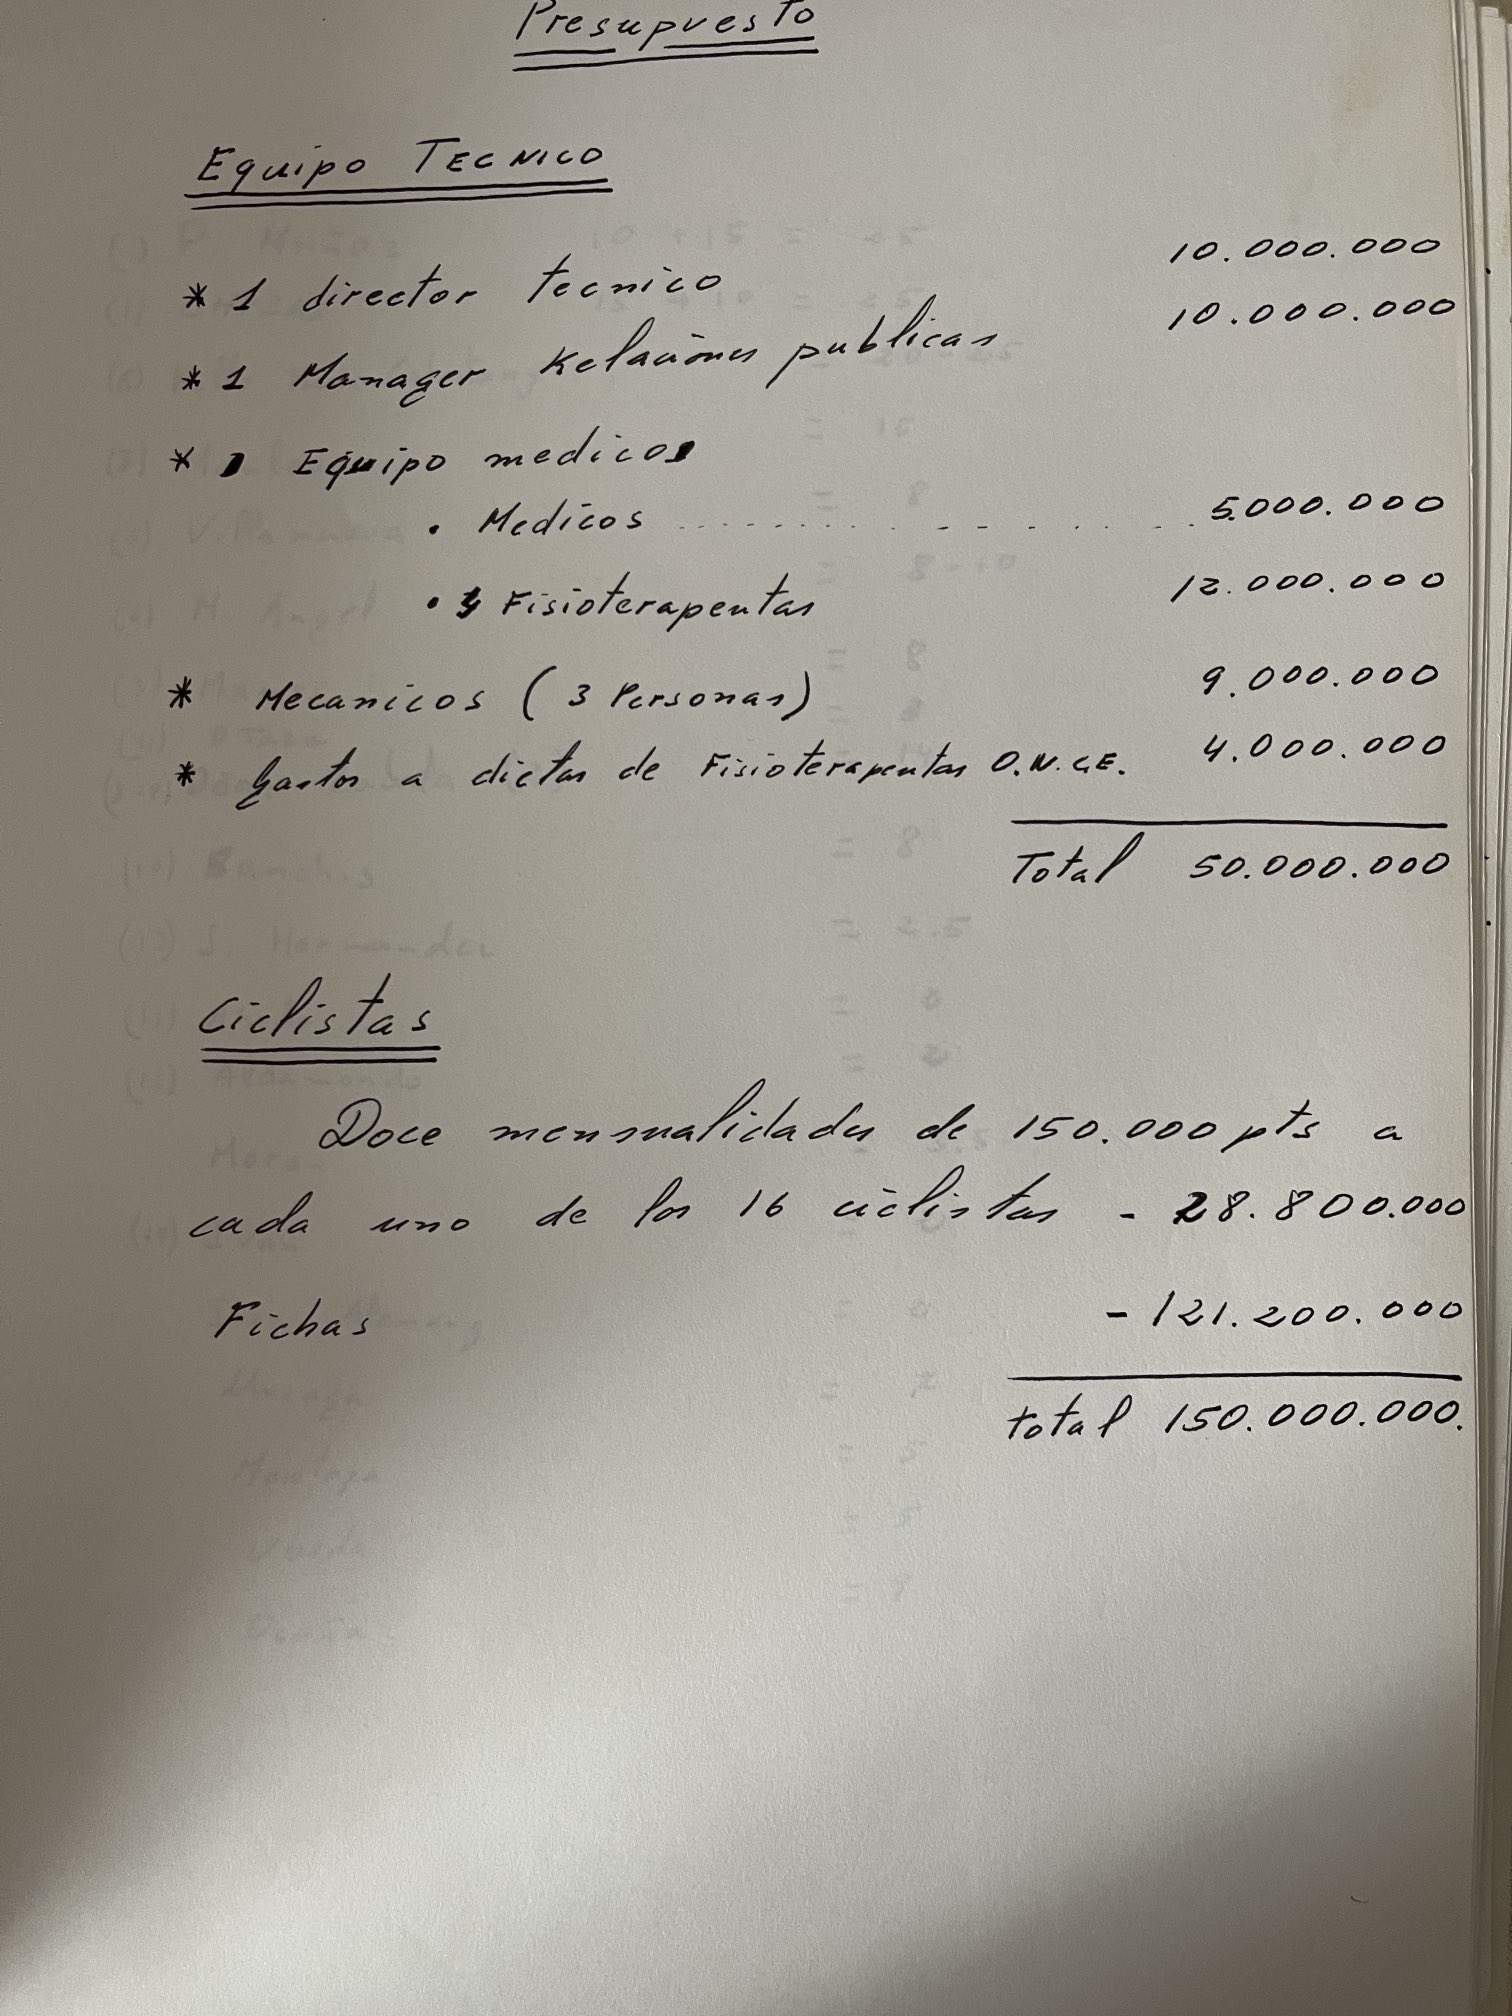 Presupuesto
Equipo TECNICO
* 1 director tecnico 10.000.000
* 1 Manager Relaciones publicas 10.000.000
* Equipo medico
• Medicos .................. 5.000.000
• 4 Fisioterapeutas 12.000.000
* Mecanicos (3 Personas) 9.000.000
* Gastos a dietas de Fisioterapeutas O.N.C.E. 4.000.000
Total 50.000.000
Ciclistas
Doce mensualidades de 150.000 pts a
cada uno de los 16 ciclistas - 28.800.000
Fichas - 121.200.000
total 150.000.000.